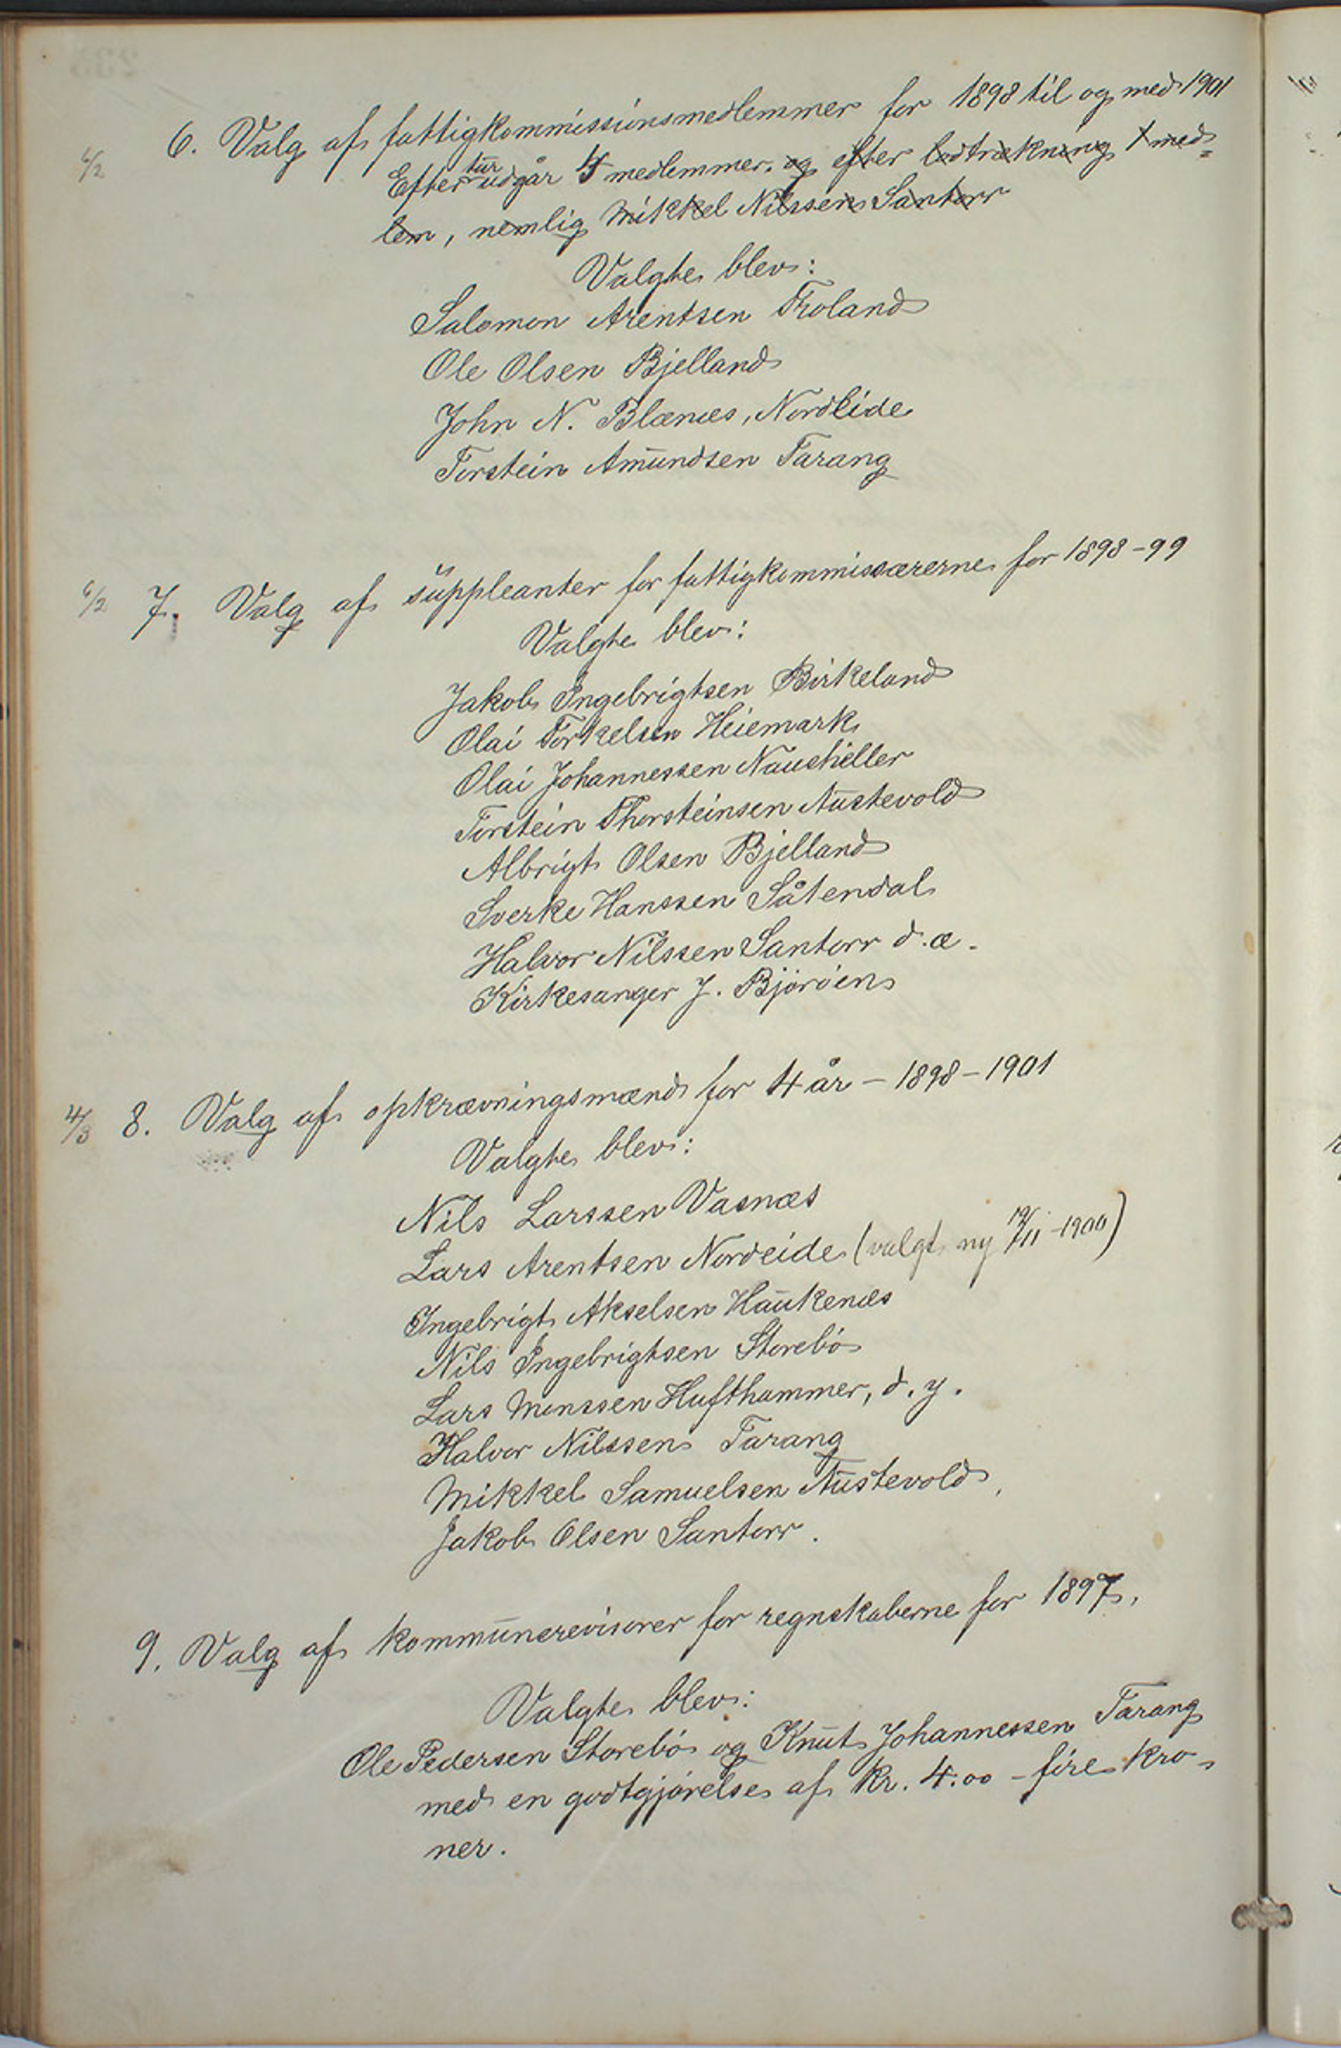 6/2 6. Valg af fattigkommissionsmedlemmer for 1898 til og med 1901
Efter tur udgår 4 medlemmer. og efter lodtrækning 1 med=
lem, nemlig Mikkel Nilssen Santorr
Valgte blev:
Salomon Arentsen Troland
Ole Olsen Bjelland
John N. Blænæs, Nordeide
Torstein Amundsen Tarang
6/2 7. Valg af suppleanter for fattigkommissærerne for 1898-99
Valgte blev:
Jakob Ingebrigtsen Birkeland
Olai Torkelsen Heiemark
Olai Johannessen Naustheller
Torstein Thorsteinsen Austevold
Albrigt Olsen Bjelland
Sverke Hanssen Såtendal
Halvor Nilssen Santorr d.æ.
Kirkesanger J. Björöen
4/3 8. Valg af opkrævningsmænd for 4 år - 1898-1901
Valgte blev:
Nils Larssen Vasnæs
Lars Arentsen Nordeide (valgt ny 19/11-1900)
Ingebrigt Akselsen Haukenæs
Nils Ingebrigtsen Storebö
Lars Monssen Hufthammer, d.y.
Halvor Nilssen Tarang
Mikkel Samuelsen Austevold,
Jakob Olsen Santorr.
9. Valg af kommunerevisorer for regnskaberne for 1897.
Valgte blev:
Ole Pedersen Storebö og Knut Johannessen Tarang
med en godtgjörelse af kr. 4.00 - fire kro-
ner.